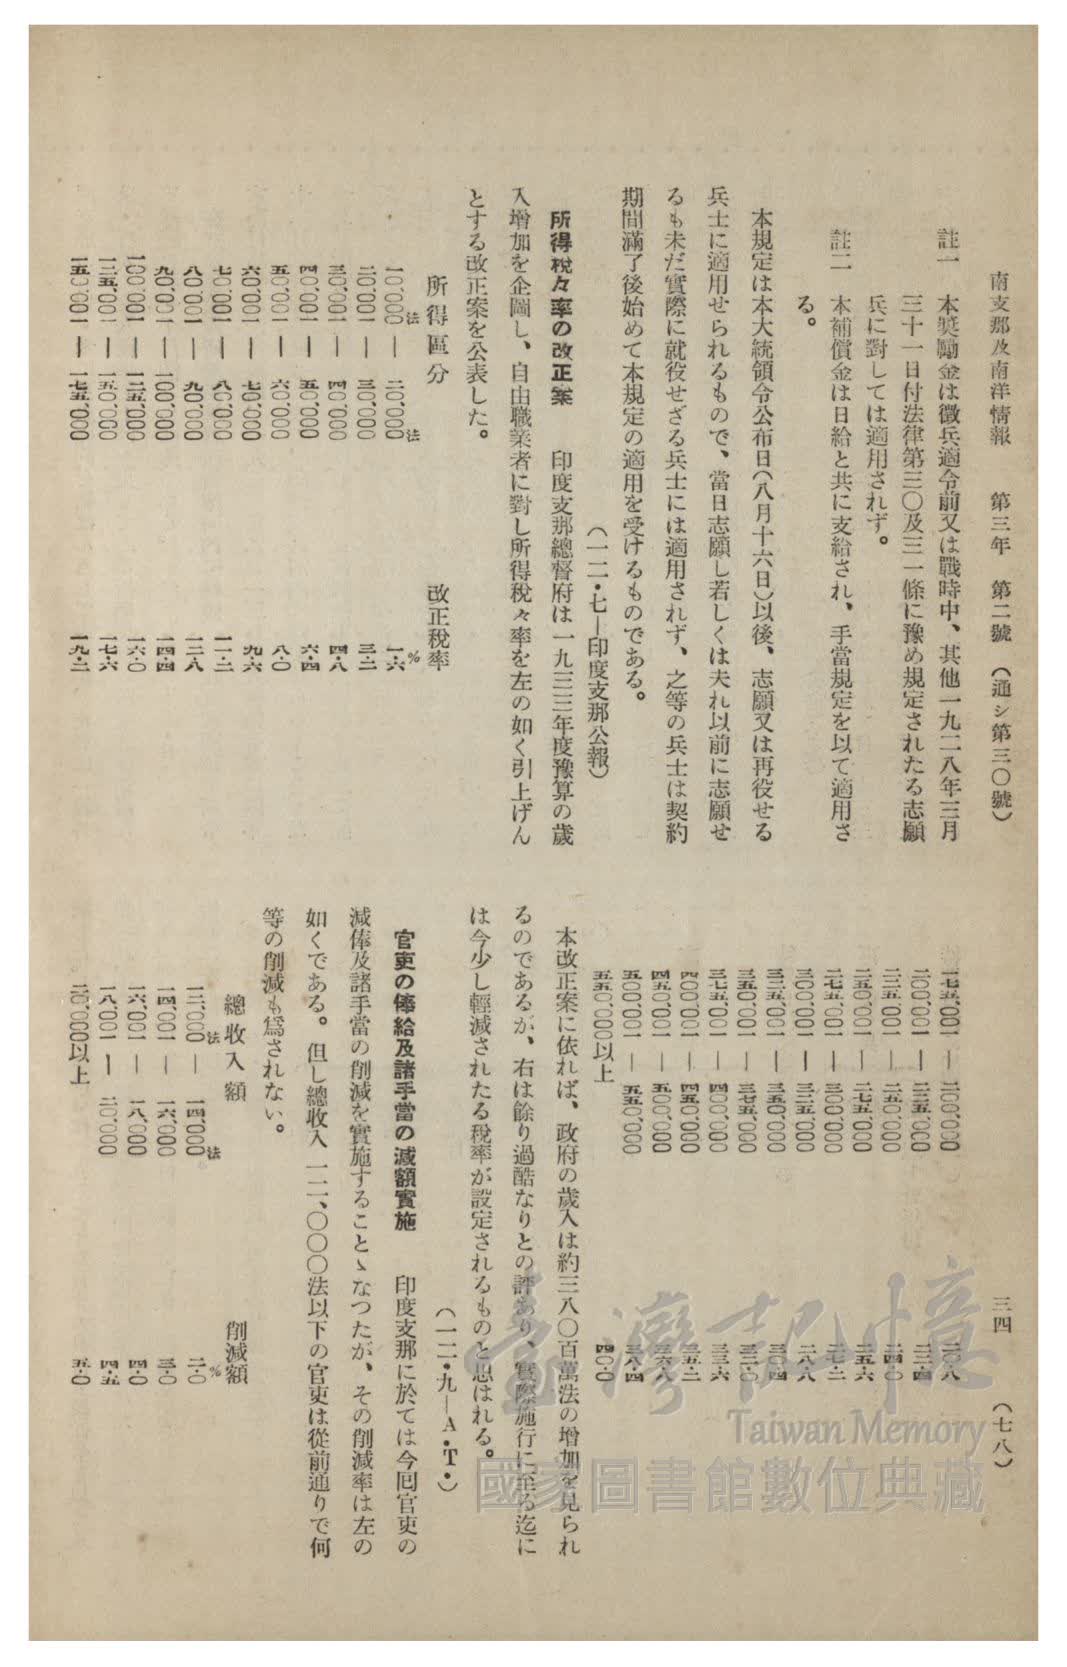 南支那及南洋情報　第三年　第二號　（通シ第三〇號）　三四　（七八）
註一　本奬勵金は徵兵適令前又は戰時中、其他一九二八年三月
三十一日付法律第三〇及三一條に豫め規定されたる志願
兵に對しては適用されず。
註二　本補償金は日給と共に支給され、手當規定を以て適用さ
る。
本規定は本大統領令公布日（八月十六日）以後、志願又は再役せる
兵士に適用せられるもので、當日志願し若しくは夫れ以前に志願せ
るも未だ實際に就役せざる兵士には適用されず、之等の兵士は契約
期間滿了後始めて本規定の適用を受けるものである。
（一二・七—印度支那公報）
所得稅々率の改正案　印度支那總督府は一九三三年度豫算の歲
入增加を企圖し、自由職業者に對し所得稅々率を左の如く引上げん
とする改正案を公表した。
所得區分　改正稅率
一〇、〇〇〇法—二〇、〇〇〇法　一・六%
二〇、〇〇一—三〇、〇〇〇　三・二
三〇、〇〇一—四〇、〇〇〇　四・八
四〇、〇〇一—五〇、〇〇〇　六・四
五〇、〇〇一—六〇、〇〇〇　八・〇
六〇、〇〇一—七〇、〇〇〇　九・六
七〇、〇〇一—八〇、〇〇〇　一一・二
八〇、〇〇一—九〇、〇〇〇　一二・八
九〇、〇〇一—一〇〇、〇〇〇　一四・四
一〇〇、〇〇一—一二五、〇〇〇　一六・〇
一二五、〇〇一—一五〇、〇〇〇　一七・六
一五〇、〇〇一—一七五、〇〇〇　一九・二
一七五、〇〇一—二〇〇、〇〇〇　二〇・八
二〇〇、〇〇一—二二五、〇〇〇　二二・四
二二五、〇〇一—二五〇、〇〇〇　二四・〇
二五〇、〇〇一—二七五、〇〇〇　二五・六
二七五、〇〇一—三〇〇、〇〇〇　二七・二
三〇〇、〇〇一—三二五、〇〇〇　二八・八
三二五、〇〇一—三五〇、〇〇〇　三〇・四
三五〇、〇〇一—三七五、〇〇〇　三二・〇
三七五、〇〇一—四〇〇、〇〇〇　三三・六
四〇〇、〇〇一—四五〇、〇〇〇　三五・二
四五〇、〇〇一—五〇〇、〇〇〇　三六・八
五〇〇、〇〇一—五五〇、〇〇〇　三八・四
五五〇、〇〇〇以上　四〇・〇
本改正案に依れば、政府の歲入は約三八〇百萬法の增加を見られ
るのであるが、右は餘り過酷なりとの評あり、實際施行に至る迄に
は今少し輕減されたる稅率が設定されるものと思はれる。
（一二・九—A・T・）
官吏の俸給及諸手當の減額實施　印度支那に於ては今囘官吏の
減俸及諸手當の削減を實施することゝなつたが、その削減率は左の
如くである。但し總收入一二、〇〇〇法以下の官吏は從前通りで何
等の削減も爲されない。
總收入額　削減額
一二、〇〇〇法—一四、〇〇〇法　二・〇%
一四、〇〇一—一六、〇〇〇　三・〇
一六、〇〇一—一八、〇〇〇　四・〇
一八、〇〇一—二〇、〇〇〇　四・五
二〇、〇〇〇以上　五・〇
臺灣記憶
Taiwan Memory
國家圖書館數位典藏